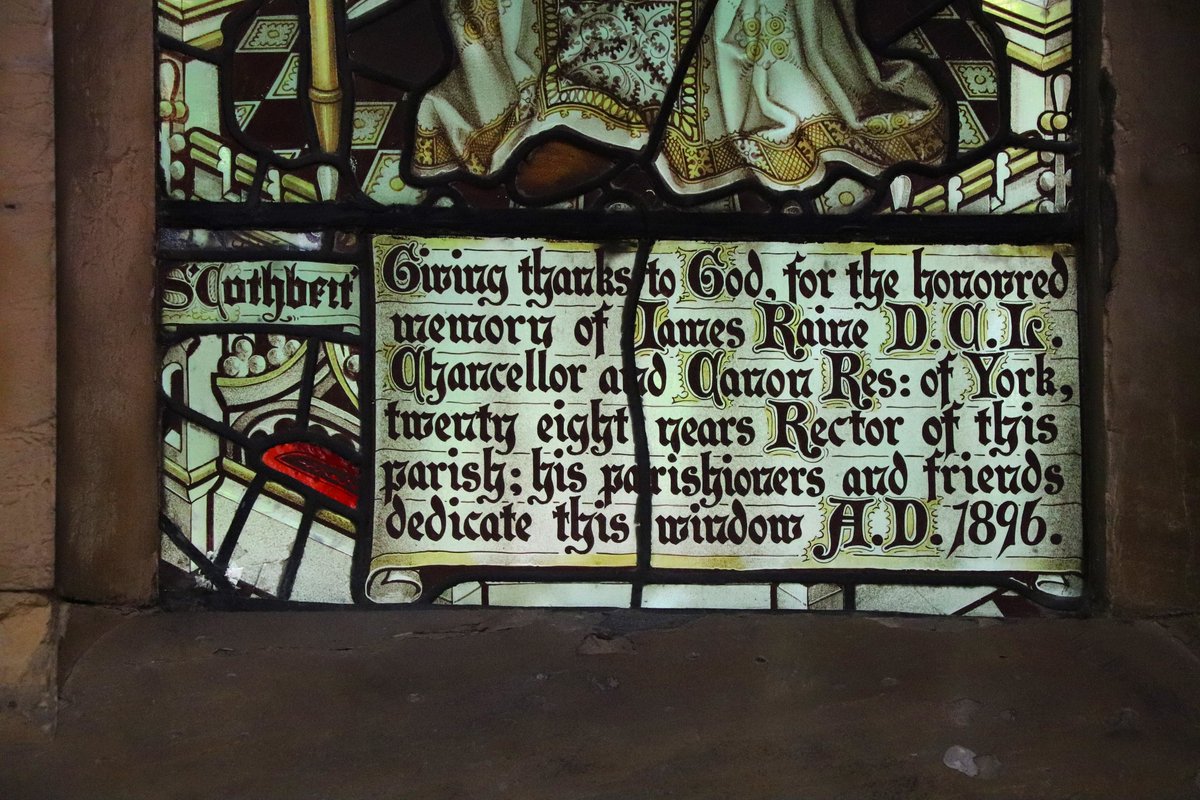 St Cuthbert
Giving thanks to God, for the honoured
memory of James Raine D.C.L.
Chancellor and Canon Res: of York,
twenty eight years Rector of this
parish; his parishioners and friends
dedicate this window A.D. 1896.